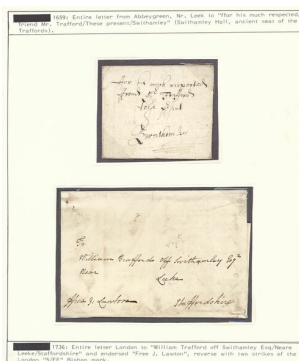 1659: Entire letter from Abbeygreen, Nr. Leek to "ffor his much respected
friend Mr. Trafford/These present/Swithamley" (Swithamley Hall, ancient seat of the
Traffords).
ffor his much respected
friend Mr Trafford
These present
Swithamley
To
William Trafford off Swithamley Esqr
Neare
Leeke
ffree J. Lawton
Staffordshire
1736: Entire letter London to "William Trafford off Swithamley Esq/Neare
Leeke/Staffordshire" and endorsed "Free J. Lawton", reverse with two strikes of the
London "5/FE" Bishop mark.